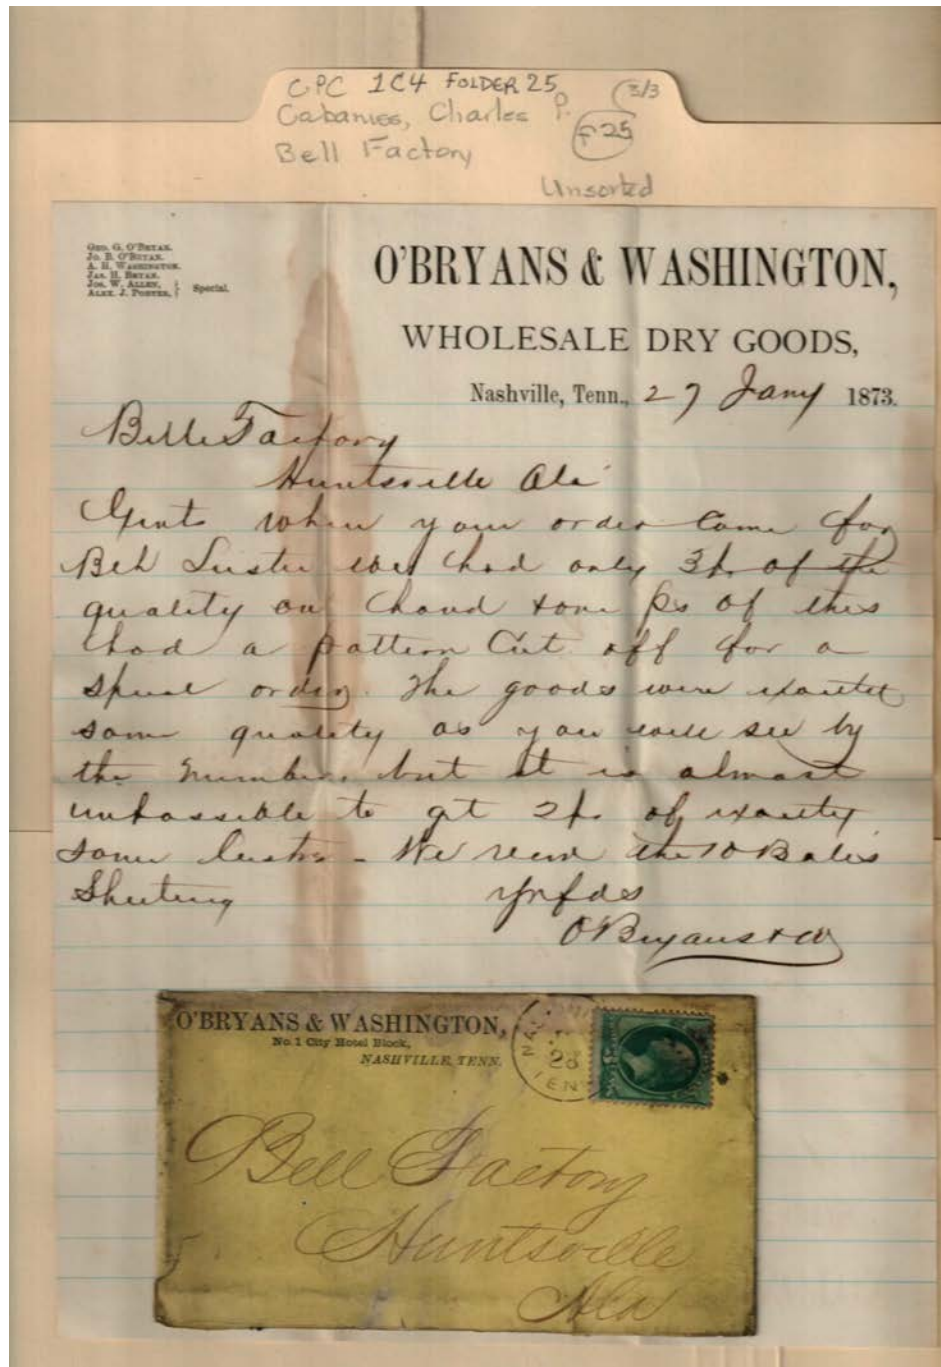 CPC 1C4 FOLDER 25
3/3
Cabaniss, Charles P.
F-25
Bell Factory
Unsorted
GEO. G. O'BRYAN.
JO. B. O'BRYAN.
A. H. WASHINGTON.
JAS. H. BRYAN.
JOS. W. ALLEN,
ALEX. J. PORTER, } Special.
O'BRYANS & WASHINGTON,
WHOLESALE DRY GOODS,
Nashville, Tenn., 27 Jany 1873.
Belle Factory
Huntsville Ala
Gents when your order come for
Blk Luster we had only 3 ps of the
quality on hand & one ps of this
had a pattern Cut off for a
special order. The goods were exactly
same quality as you will see by
the number. but it is almost
unpossible to get 2 ps of exactly
same luster - We recvd the 10 Bales
Sheeting
Yr fds
O'Bryans & W
O'BRYANS & WASHINGTON,
No. 1 City Hotel Block,
NASHVILLE, TENN.
28
TEN
Bell Factory
Huntsville
Ala